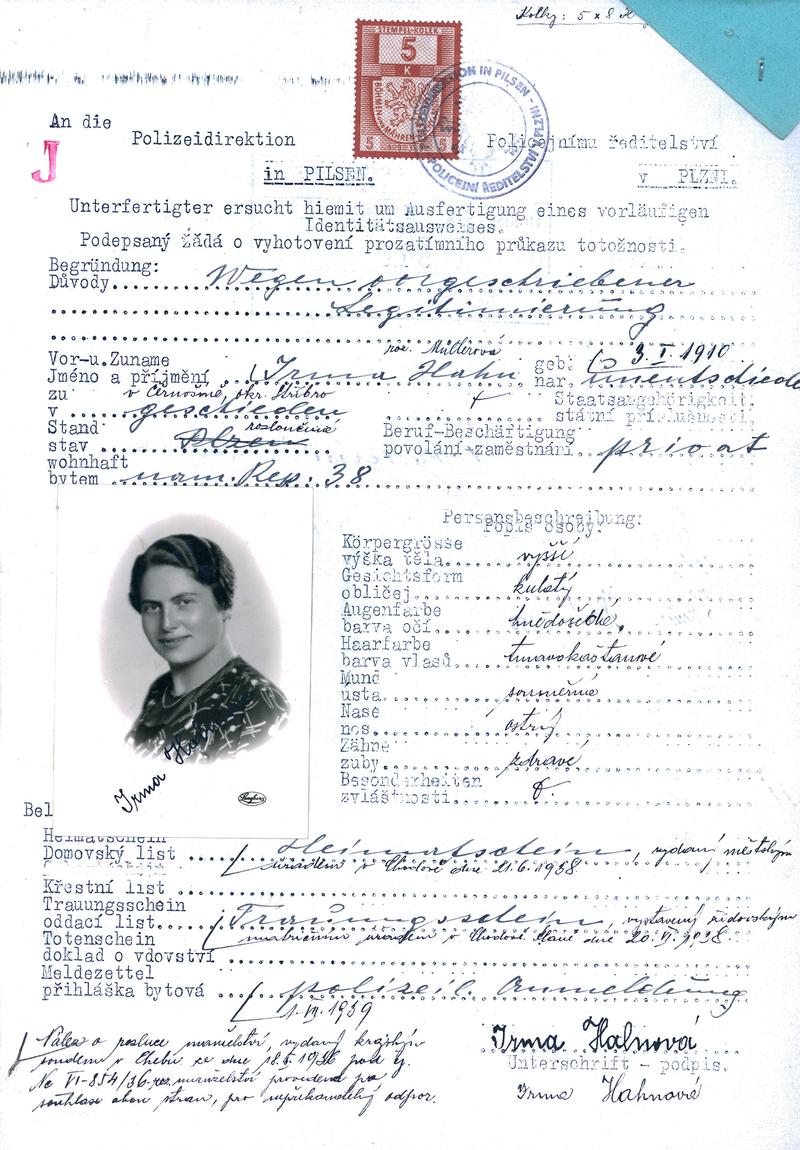 Kolky: 5 x 8 K
STEMPEL-KOLEK
5
K
BÖHMEN MÄHREN
5 5
POLIZEIDIREKTION IN PILSEN
POLICEJNÍ ŘEDITELSTVÍ V PLZNI
An die
Polizeidirektion Policejnímu ředitelství
J
in PILSEN. v PLZNI.
Unterfertigter ersucht hiemit um Ausfertigung eines vorläufigen
Identitätsausweises.
Podepsaný žádá o vyhotovení prozatímního průkazu totožnosti.
Begründung:
Důvody Wegen vorgeschriebener
Legitimierung
roz. Müllerová
Vor-u.Zuname geb. 3. I. 1910
Jméno a příjmění Irma Hahn nar. unentschieden
zu v Černošíně, okr. Stříbro Staatsangehörigkeit
v geschieden státní příslušnosti
Stand rozloučená Beruf-Beschäftigung
stav Pilzen povolání-zaměstnání privat
wohnhaft
bytem nám. Rep. 38
Personsbeschreibung:
Popis osoby:
Körpergrösse
výška těla vyšší
Gesichtsform
obličej kulatý
Augenfarbe
barva očí hnědošedé
Haarfarbe
barva vlasů tmavokaštanové
Mund
ústa souměrná
Nase
nos ostrý
Zähne
zuby zdravé
Besonderheiten
zvláštnosti
Irma Hahnová
Bel
Heimatschein
Domovský list Heimatschein, vydaný městským
úřadem v Chodové dne 21.6.1938
Křestní list
Trauungsschein
oddací list Trauungsschein, vystavený židovským
Totenschein matričním úřadem v Chodové Plané dne 20. VI. 1938.
doklad o vdovství
Meldezettel
přihláška bytová polizeil. Anmeldung
1. VII. 1939
Nález o rozluce manželství, vydaný krajským
soudem v Chebu ze dne 18. 1936 pod čj.
Nc VI-854/36. manželství provedena po
souhlase obou stran, pro nepřekonatelný odpor.
Irma Hahnová
Unterschrift - podpis.
Irma Hahnová